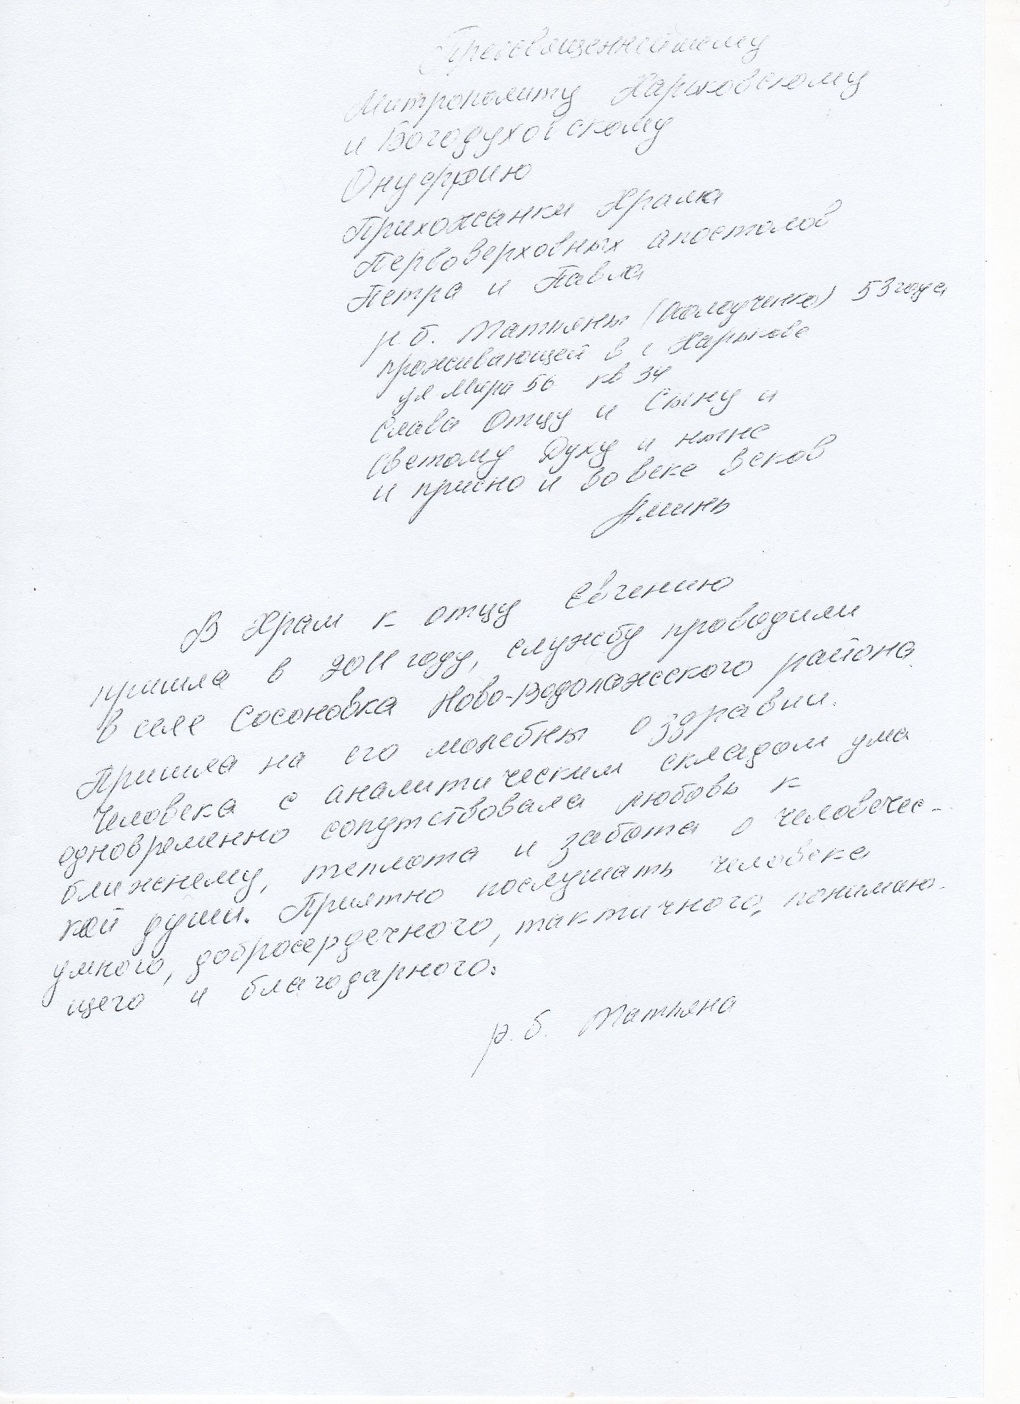 Преосвященнейшему
Митрополиту Харьковскому
и Богодуховскому
Онуфрию
Прихожанки Храма
Первоверховных апостолов
Петра и Павла
р. б. Татианы 53 года
проживающей в г Харькове
ул Мира 56 кв 34
Слава Отцу и Сыну и
Светому Духу и ныне
и присно и во веке веков
Аминь
В Храм к отцу Евгению
пришла в 2011 году, службу проводили
в селе Сосоновка Ново-Водолажского района
Пришла на его молебны о здравии.
Человека с аналитическим складом ума
одновременно сопутствовала любовь к
ближнему, теплота и забота о человечес-
кой души. Приятно послушать человека
умного, добросердечного, тактичного, понимаю-
щего и благодарного.
р. б. Татьяна